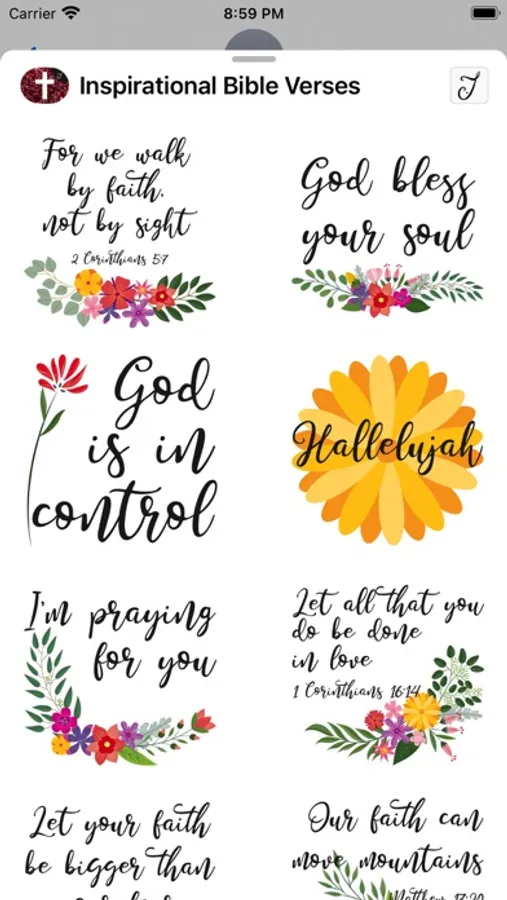 Carrier 8:59 PM
Inspirational Bible Verses
For we walk
by faith,
not by sight
2 Corinthians 5:7
God bless
your soul
God
is in
control
Hallelujah
I'm praying
for you
Let all that you
do be done
in love
1 Corinthians 16:14
Let your faith
be bigger than
Our faith can
move mountains
Matthew 17:20